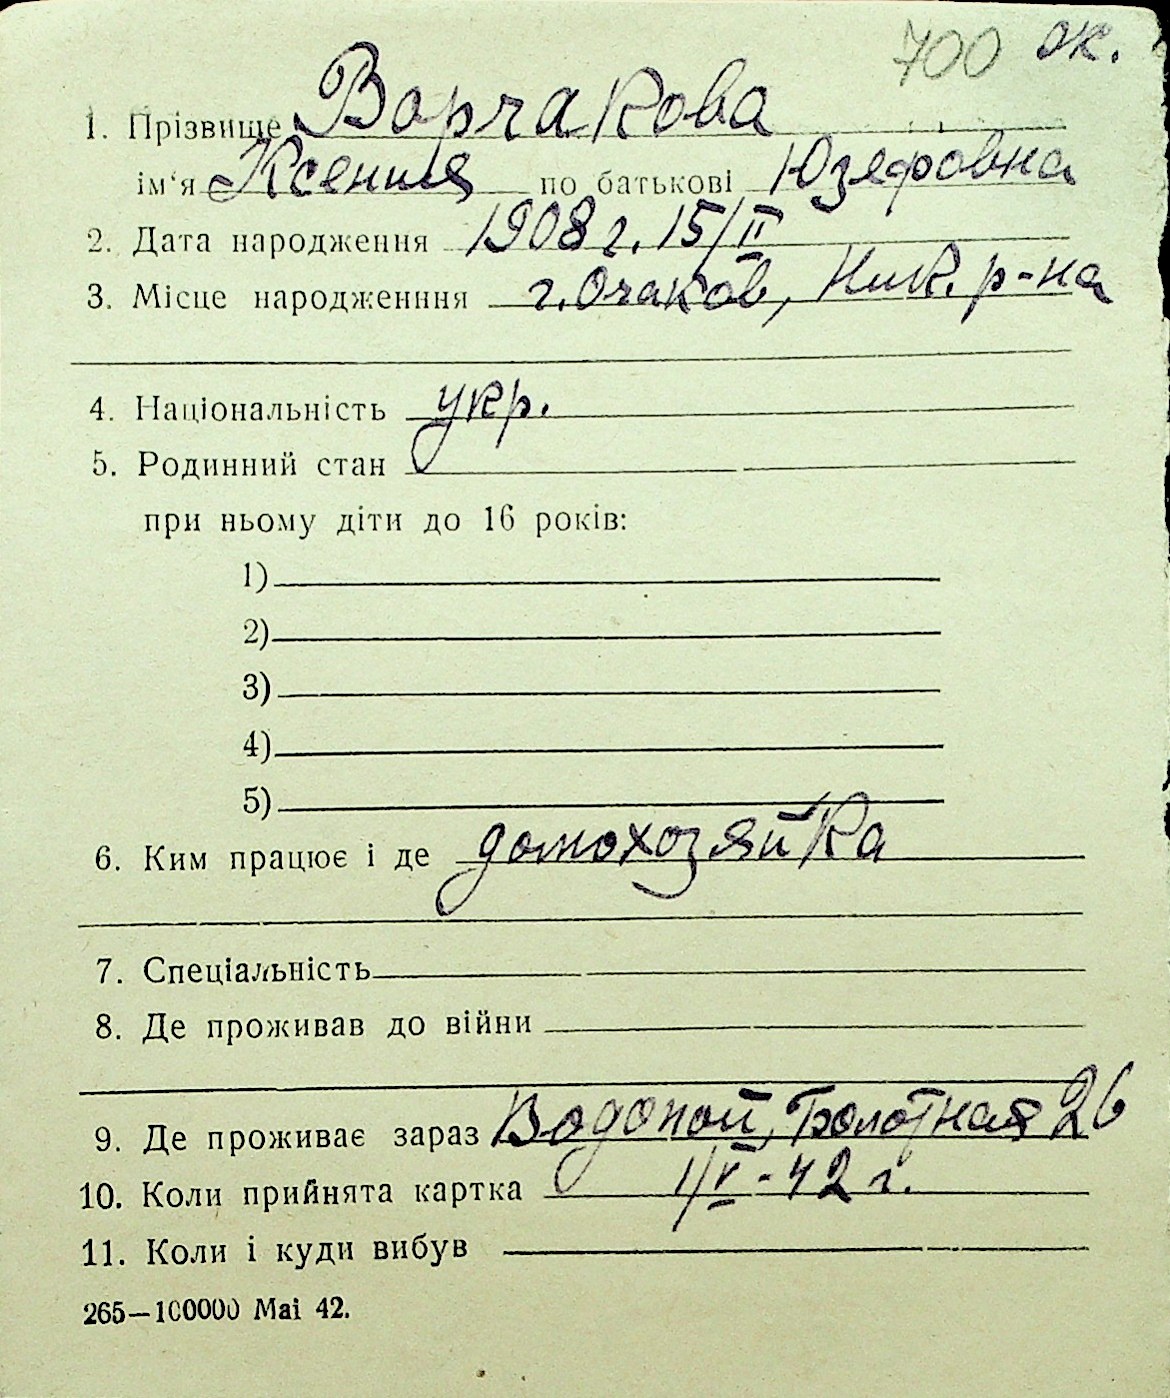 700 ок.
1. Прізвище Ворчакова
ім'я Ксения по батькові Юзефовна
2. Дата народження 1908 г. 15/II
3. Місце народженння г. Очаков, Ник. р-на
4. Національність укр.
5. Родинний стан
при ньому діти до 16 років:
1)
2)
3)
4)
5)
6. Ким працює і де домохозяйка
7. Спеціальність
8. Де проживав до війни
9. Де проживає зараз Водопой, Болотная 26
10. Коли прийнята картка 1/V - 42 г.
11. Коли і куди вибув
265—100000 Mai 42.